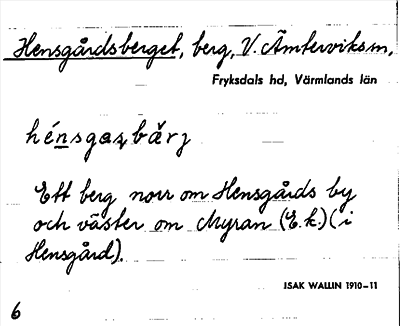 Hensgårdsberget, berg, V. Ämterviks sn,
Fryksdals hd, Värmlands län
Ett berg norr om Hensgårds by
och väster om Myran (E.k.) (i
Hensgård).
ISAK WALLIN 1910–11
6